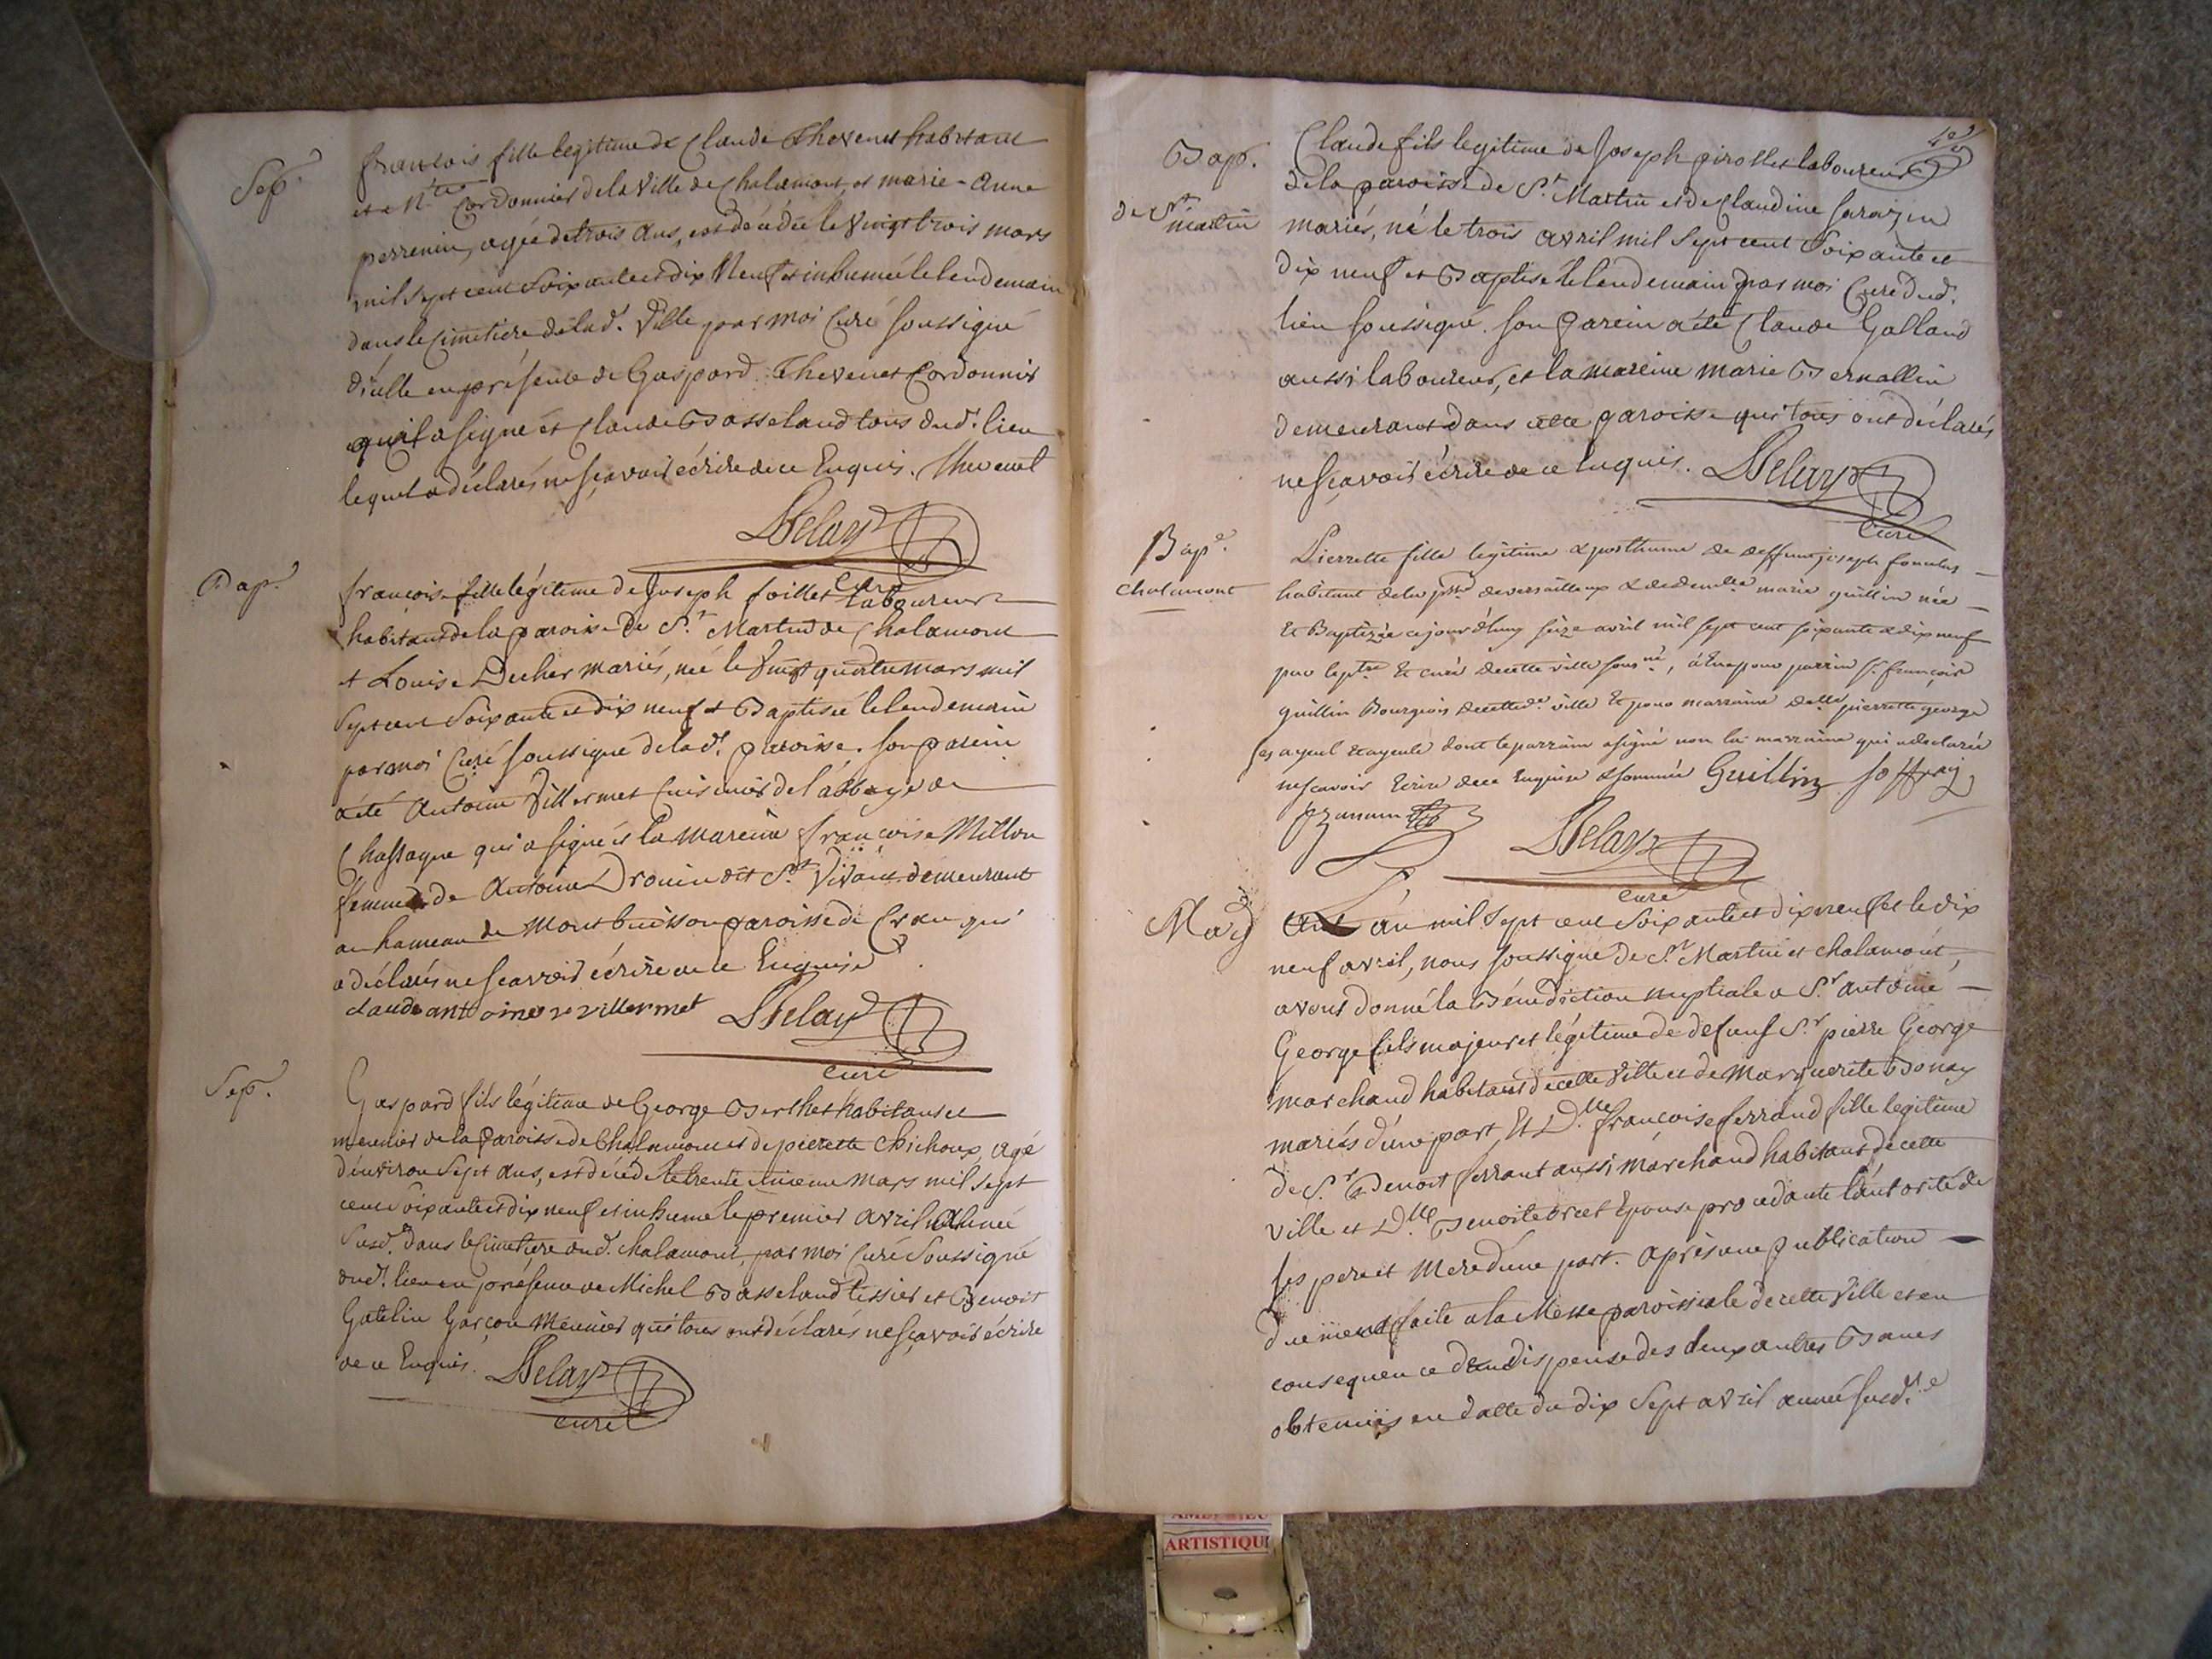 Sep.
francois fille legitime de Claude Thevenet habitant
et Me Cordonnier de la Ville de Chalamont, et marie-Anne
perrenin, agée de trois ans, est décédée le vingt trois mars
mil sept cent Soixante et dix Neuf et inhumée le lendemain
dans le Cimetiere de lad. Ville par moi Curé soussigné
d'icelle en présence de Gaspard Thevenet Cordonnier
qui a signé et Claude Basseland tous dud. lieu
lequel a déclarés ne sçavoir écrire de ce Enquis. Thevenet
Delay
curé
Bap.
françoise fille légitime de Joseph foillet Laboureur
habitant de la paroisse de St. Martin de Chalamont
et Louise Decher mariés, née le vingt quatre mars mil
Sept cent Soixante et dix neuf et Baptisée le lendemain
par moi Curé soussigné de lad. paroisse. son parein
a été Antoine Villermet Cuisinier de l'abbaye de
Chassagne qui a signé et la mareine françoise Millon
femme de Antoine Drouin dit St. Vivant demeurant
au hameau de Montbuisson paroisse de Cran qui
a déclarés ne scavoir écrire de ce Enquise
claude antoine villermet Delay
curé
Sep.
Gaspard fils légitime de George Berthet habitans et
meunier de la Paroisse de Chalamont et de pierette Chichoux, agé
d'environ Sept ans, est décédé le trente unieme mars mil sept
cent Soixante et dix neuf et inhumé le premier Avril Année
Susd. dans le Cimetiere dud. Chalamont, par moi Curé Soussigné
dud. lieu en présence de Michel Basseland tissier et Benoit
Gatelin Garçon Meunier qui tous ont déclarés ne sçavoir écrire
de ce Enquis. Delay
curé
Bap.
de St. martin
Claude fils legitime de Joseph girollet laboureur
de la paroisse de St. Martin et de Claudine Sarazin
mariés, né le trois avril mil Sept cent Soixante et
dix neuf et Baptisé le lendemain par moi Curé dud.
lieu soussigné. son Parein a été Claude Galland
aussi laboureur, et la mareine marie Bernallin
demeurant dans cette paroisse qui tous ont déclarés
ne sçavoir écrire de ce Enquis. Delay
Curé
Bape.
chalamont
Pierrette fille legitime & posthume de deffunt joseph
habitant de la psse de versailleux & de demlle marie guillin née
Et Baptizée ce jourd'huy seize avril mil sept cent soixante & dix neuf
par le ptre Et curé de cette ville sousné, a Eu pour parrin sr. françois
guillin Bourgeois de cette d. ville Et pour marraine dlle pierrette george
ses ayeul & ayeule dont le parrain a signé non la marraine qui a declarée
ne scavoir Ecrire de ce Enquise & sommée Guillin Joffray
Delay
curé
Mag
an mil Sept cent Soixante et dix neuf et le dix
neuf avril, nous soussigné de St. Martin et chalamont,
avons donné la Bénédiction nuptiale a Sr. antoine
George fils majeur et légitime de defunt Sr. pierre George
marchand habitant de cette Ville et de Marguerite Bonay
mariés d'une part, Et Dlle francoise ferrand fille legitime
de Sr. Benoit ferrant aussi Marchand habitant de cette
ville et Dlle Benoite Epouse procedante l'autorité de
ses pere et Mere d'une part. Après une publication
duement faite a la Messe paroissiale de cette ville et en
consequence d'un dispense des deux autres Bancs
obtenues en datte du dix Sept avril année Susd.